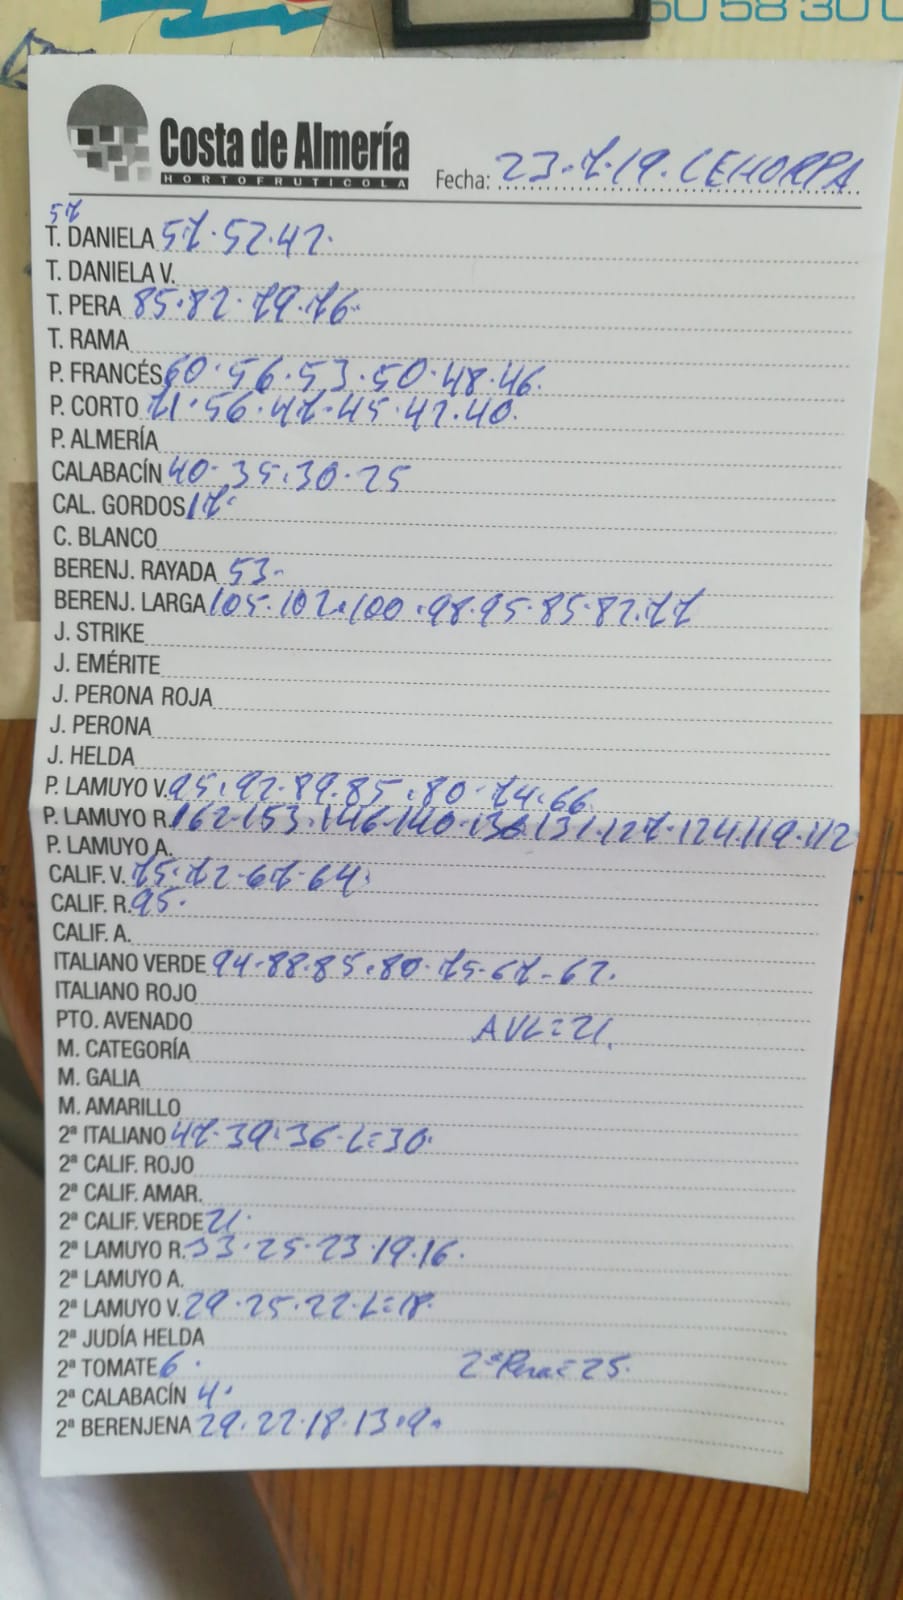 60 58 30 0
Costa de Almería
HORTOFRUTICOLA
Fecha: 23.7.19. CEHORPA
57
T. DANIELA 57.52.42.
T. DANIELA V.
T. PERA 85.82.79.76.
T. RAMA
P. FRANCÉS 60.56.53.50.48.46.
P. CORTO 71.56.47.45.42.40.
P. ALMERÍA
CALABACÍN 40.35.30.25
CAL. GORDOS 17.
C. BLANCO
BERENJ. RAYADA 53.
BERENJ. LARGA 105.102.100.98.95.85.82.77
J. STRIKE
J. EMÉRITE
J. PERONA ROJA
J. PERONA
J. HELDA
P. LAMUYO V. 95.92.89.85.80.74.66.
P. LAMUYO R. 162.153.146.140.136.131.127.124.119.112
P. LAMUYO A.
CALIF. V. 75.72.67.64.
CALIF. R. 95.
CALIF. A.
ITALIANO VERDE 94.88.85.80.75.67.62.
ITALIANO ROJO
PTO. AVENADO AVL=21.
M. CATEGORÍA
M. GALIA
M. AMARILLO
2ª ITALIANO 47.39.36.L=30.
2ª CALIF. ROJO
2ª CALIF. AMAR.
2ª CALIF. VERDE 21.
2ª LAMUYO R. 33.25.23.19.16.
2ª LAMUYO A.
2ª LAMUYO V. 29.25.22.L=18.
2ª JUDÍA HELDA
2ª TOMATE 6. 2ª Pera=25.
2ª CALABACÍN 4.
2ª BERENJENA 29.22.18.13.9.